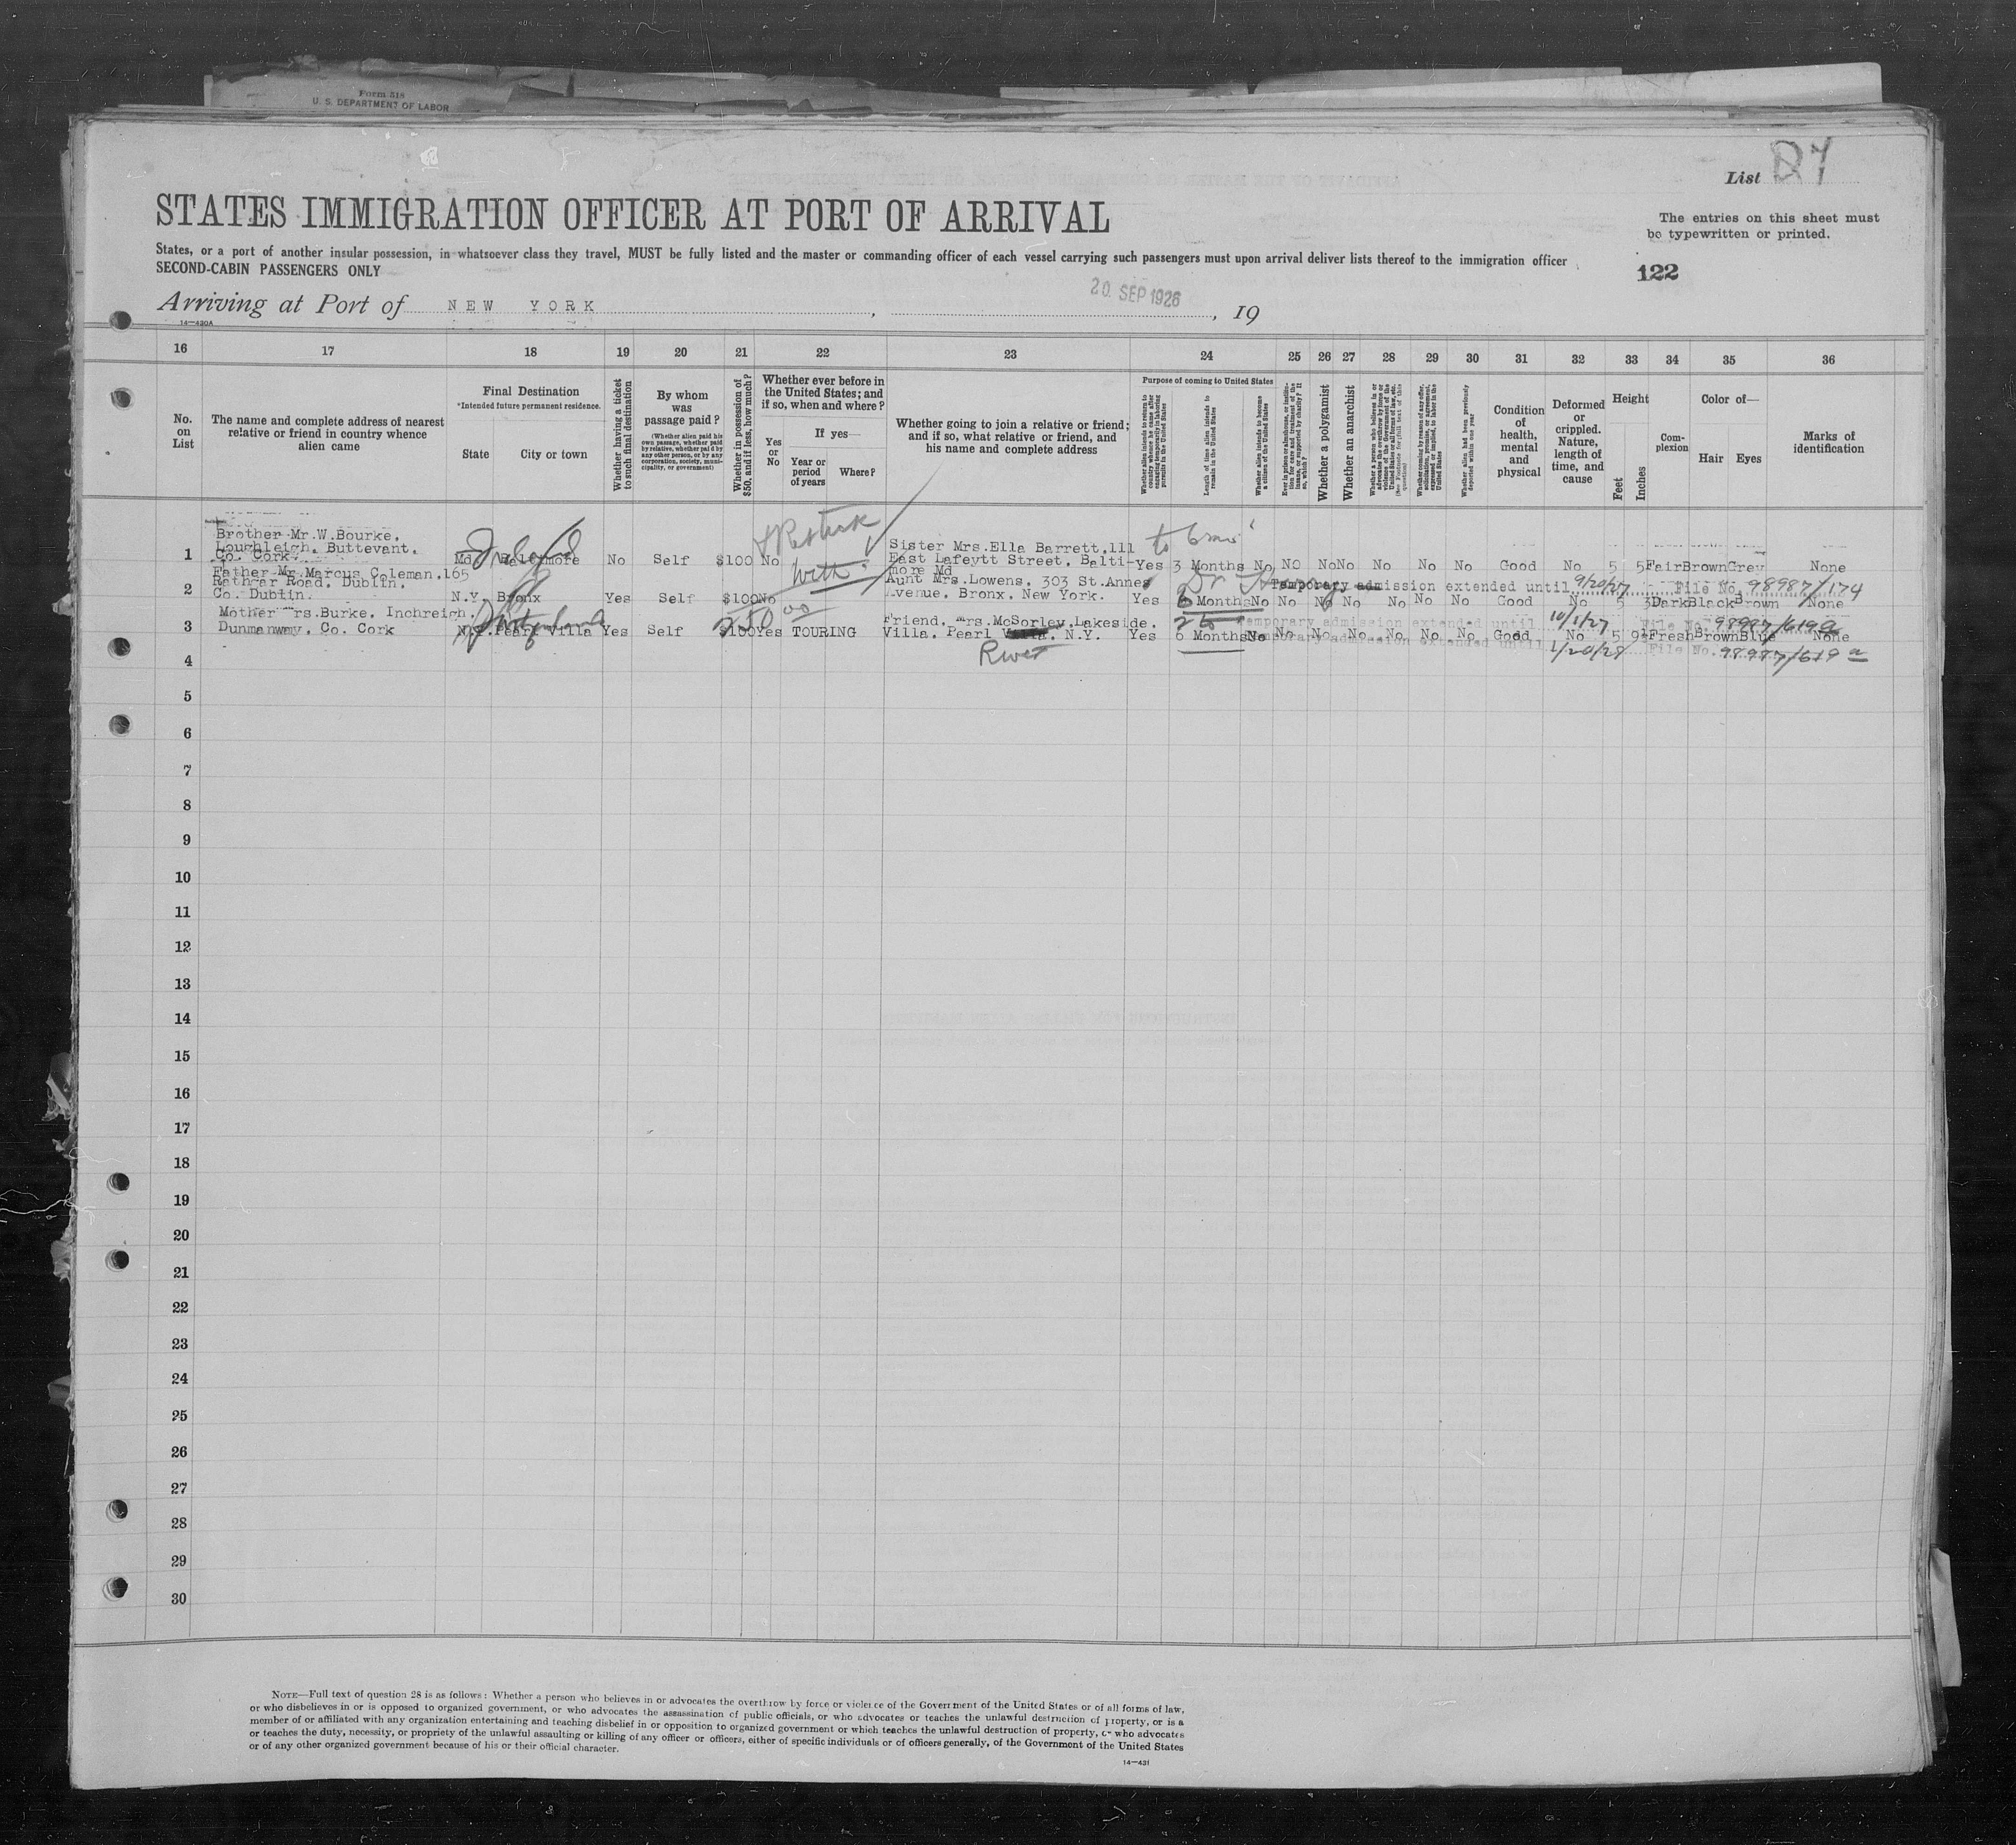 Form 518
U. S. DEPARTMENT OF LABOR
List
STATES IMMIGRATION OFFICER AT PORT OF ARRIVAL
The entries on this sheet must
be typewritten or printed.
States, or a port of another insular possession, in whatsoever class they travel, MUST be fully listed and the master or commanding officer of each vessel carrying such passengers must upon arrival deliver lists thereof to the immigration officer
SECOND-CABIN PASSENGERS ONLY
122
Arriving at Port of NEW YORK, 20 SEP 1926, 19
14—430A
16 17 18 19 20 21 22 23 24 25 26 27 28 29 30 31 32 33 34 35 36
No. on List
The name and complete address of nearest relative or friend in country whence alien came
Final Destination
*Intended future permanent residence.
State
City or town
Whether having a ticket to such final destination
By whom was passage paid?
(Whether alien paid his own passage, whether paid by relative, whether paid by any other person, or by any corporation, society, municipality, or government)
Whether in possession of $50, and if less, how much?
Whether ever before in the United States; and if so, when and where?
Yes or No
If yes—
Year or period of years
Where?
Whether going to join a relative or friend; and if so, what relative or friend, and his name and complete address
Purpose of coming to United States
Whether alien intends to return to country whence he came after engaging temporarily in laboring pursuits in the United States
Length of time alien intends to remain in the United States
Whether alien intends to become a citizen of the United States
Ever in prison or almshouse, or institution for care and treatment of the insane, or supported by charity? If so, which?
Whether a polygamist
Whether an anarchist
Whether alien had been previously deported within one year
Condition of health, mental and physical
Deformed or crippled. Nature, length of time, and cause
Height
Feet
Inches
Complexion
Color of—
Hair
Eyes
Marks of identification
Brother Mr.W.Bourke.
Loughleigh. Buttevant.
1 Co. Cork. Md. Baltimore No Self $100 No
Sister Mrs.Ella Barrett.111
East Lafeytt Street. Balti-
more Md
Yes 3 Months No NO No No No No No Good No 5 5 Fair Brown Grey None
Father Mr.Marcus Coleman.165
Rathgar Road. Dublin.
2 Co. Dublin. N.Y. Bronx Yes Self $100 No
Aunt Mrs.Lowens. 303 St.Annes
Avenue. Bronx. New York.
Temporary admission extended until 9/20/27 File No. 98987/174
Yes 6 Months No No No No No No No Good No 5 3 Dark Black Brown None
Mother Mrs.Burke. Inchreigh.
3 Dunmanway. Co. Cork N.Y. Pearl Villa Yes Self $100 Yes TOURING
250 00
Friend. Mrs.McSorley.Lakeside.
Villa. Pearl Villa. N.Y.
River
Temporary admission extended until 10/1/27 File No. 98987/619a
Yes 6 Months No No No No No No No Good No 5 9½ Fresh Brown Blue None
Temporary admission extended until 1/20/28 File No. 98987/619a
4
5
6
7
8
9
10
11
12
13
14
15
16
17
18
19
20
21
22
23
24
25
26
27
28
29
30
NOTE—Full text of question 28 is as follows: Whether a person who believes in or advocates the overthrow by force or violence of the Government of the United States or of all forms of law,
or who disbelieves in or is opposed to organized government, or who advocates the assassination of public officials, or who advocates or teaches the unlawful destruction of property, or is a
member of or affiliated with any organization entertaining and teaching disbelief in or opposition to organized government or which teaches the unlawful destruction of property, or who advocates
or teaches the duty, necessity, or propriety of the unlawful assaulting or killing of any officer or officers, either of specific individuals or of officers generally, of the Government of the United States
or of any other organized government because of his or their official character.
14—431